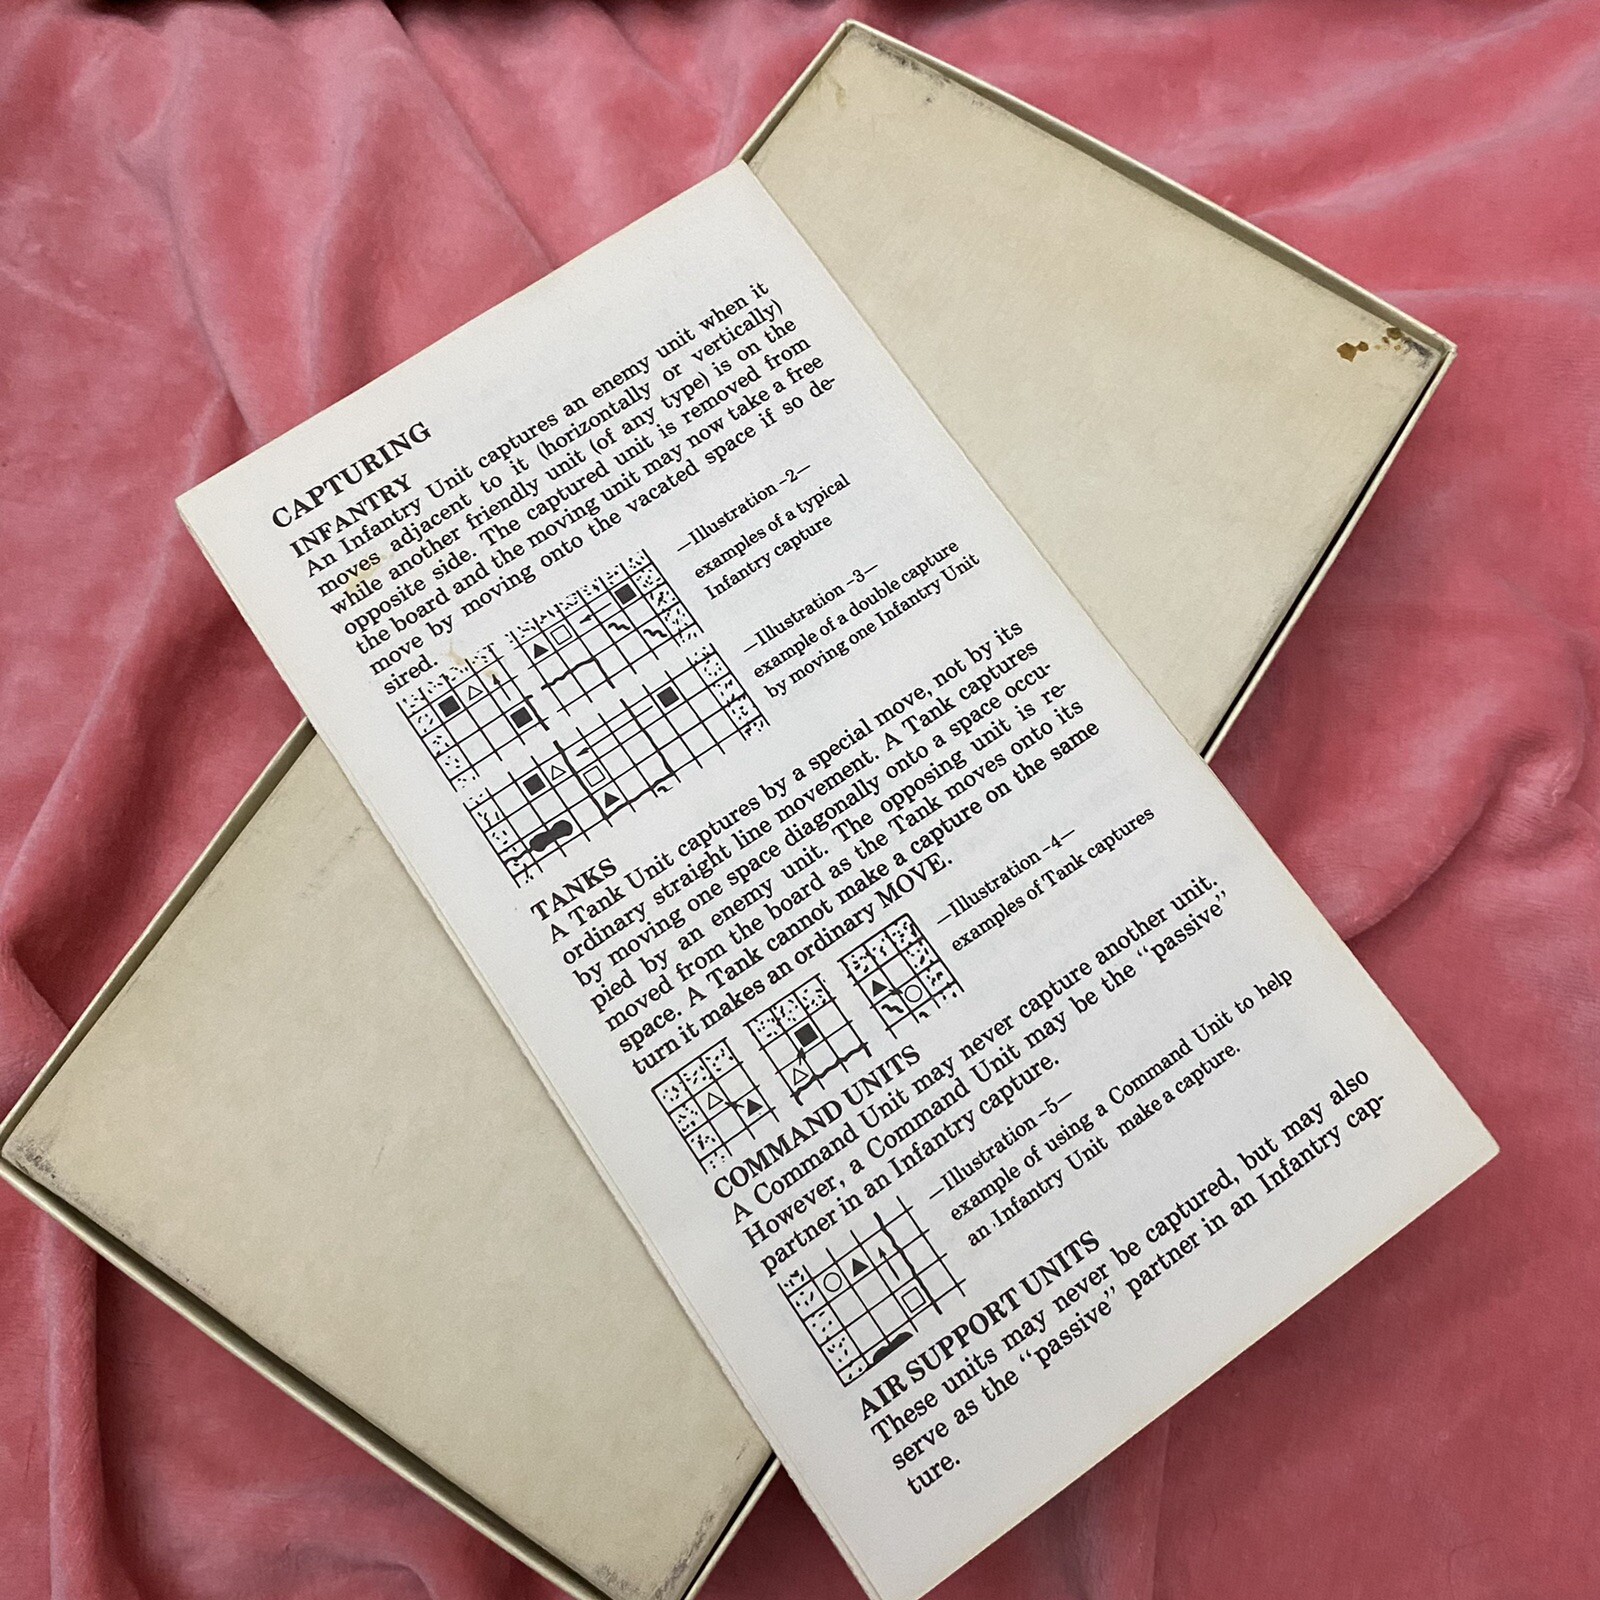 CAPTURING
INFANTRY
An Infantry Unit captures an enemy unit when it
moves adjacent to it (horizontally or vertically)
while another friendly unit (of any type) is on the
opposite side. The captured unit is removed from
the board and the moving unit may now take a free
move by moving onto the vacated space if so de-
sired.
—Illustration –2—
examples of a typical
Infantry capture
—Illustration –3—
example of a double capture
by moving one Infantry Unit
TANKS
A Tank Unit captures by a special move, not by its
ordinary straight line movement. A Tank captures
by moving one space diagonally onto a space occu-
pied by an enemy unit. The opposing unit is re-
moved from the board as the Tank moves onto its
space. A Tank cannot make a capture on the same
turn it makes an ordinary MOVE.
—Illustration –4—
examples of Tank captures
COMMAND UNITS
A Command Unit may never capture another unit.
However, a Command Unit may be the “passive”
partner in an Infantry capture.
—Illustration –5—
example of using a Command Unit to help
an Infantry Unit make a capture.
AIR SUPPORT UNITS
These units may never be captured, but may also
serve as the “passive” partner in an Infantry cap-
ture.